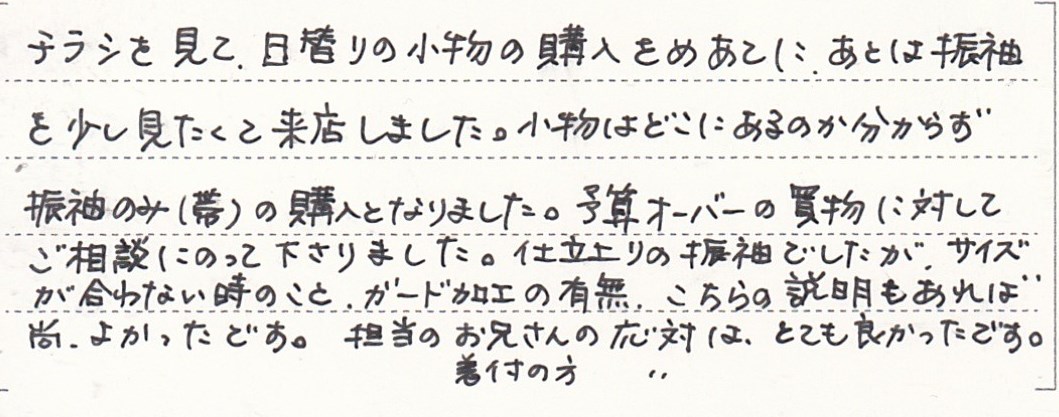 チラシを見て、日替りの小物の購入をめあてに、あとは振袖
を少し見たくて来店しました。小物はどこにあるのか分からず
振袖のみ(帯)の購入となりました。予算オーバーの買物に対して
ご相談にのって下さりました。仕立上りの振袖でしたが、サイズ
が合わない時のこと、ガード加工の有無、こちらの説明もあれば
尚、よかったです。 担当のお兄さんの応対は、とても良かったです。
着付の方 〃